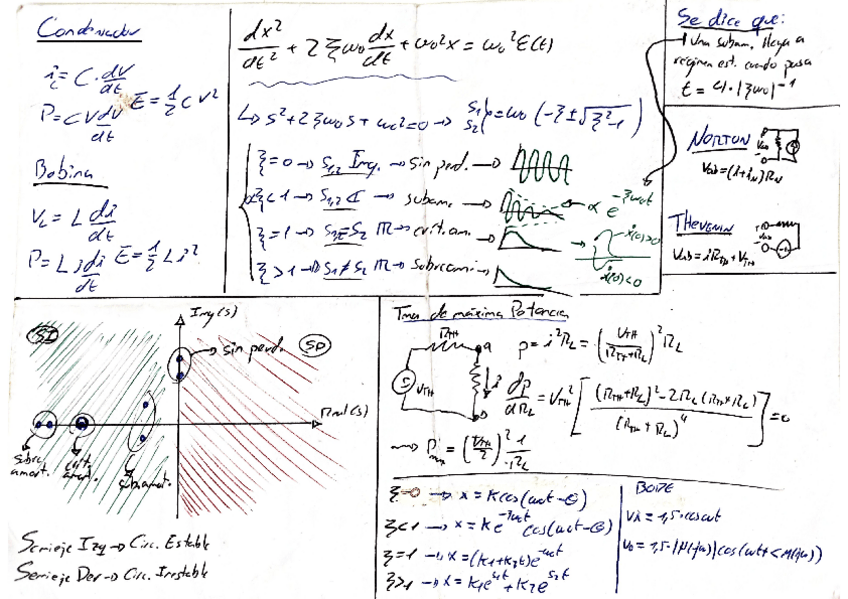 Condensador
i_c = C · dv/dt
P = C V dv/dt  E = 1/2 C V²
Bobina
V_L = L di/dt
P = L i di/dt  E = 1/2 L i²
dx²/dt² + 2 ξ ω₀ dx/dt + ω₀² x = ω₀² E(t)
↳ s² + 2 ξ ω₀ s + ω₀² = 0 → s₁ s₂ | = ω₀ (-ξ ± √(ξ² - 1))
ξ = 0 → s₁,₂ Img. → sin perd. →
0 < ξ < 1 → s₁,₂ ℂ → subam. → ← α e^(-ξω₀t)
ξ = 1 → s₁ = s₂ ℝ → crit. am. → → ẋ(0)>0
ξ > 1 → s₁ ≠ s₂ ℝ → Sobream. → ẋ(0)<0
Se dice que:
Una subam. llega a
régimen est. cuando pasa
t = 4 · |ξω₀|⁻¹
NORTON
Vab
Vab = (i + i_N) R_N
THEVENIN
Vab
Vab = i R_TH + V_TH
Img(s)
SI
SD
sin perd.
Real(s)
sobre amort.
crit. amort.
subamort.
Semieje Izq → Circ. Estable
Semieje Der → Circ. Inestable
Tma de máxima Potencia
R_TH a
V_TH i
P = i² R_L = (V_TH / (R_TH + R_L))² R_L
dp/dR_L = V_TH² [ ((R_TH + R_L)² - 2R_L (R_TH + R_L)) / (R_TH + R_L)⁴ ] = 0
→ P_max = (V_TH/2)² 1/R_L
ξ = 0 → x = K cos(ω₀t - θ)
ξ < 1 → x = K e^(-ξω₀t) cos(ω₀t - θ)
ξ = 1 → x = (K₁ + K₂t) e^(-ω₀t)
ξ > 1 → x = K₁ e^(s₁t) + K₂ e^(s₂t)
BODE
Vi = 1,5 · cos ωt
V₀ = 1,5 · |H(jω)| cos(ωt + <H(jω))